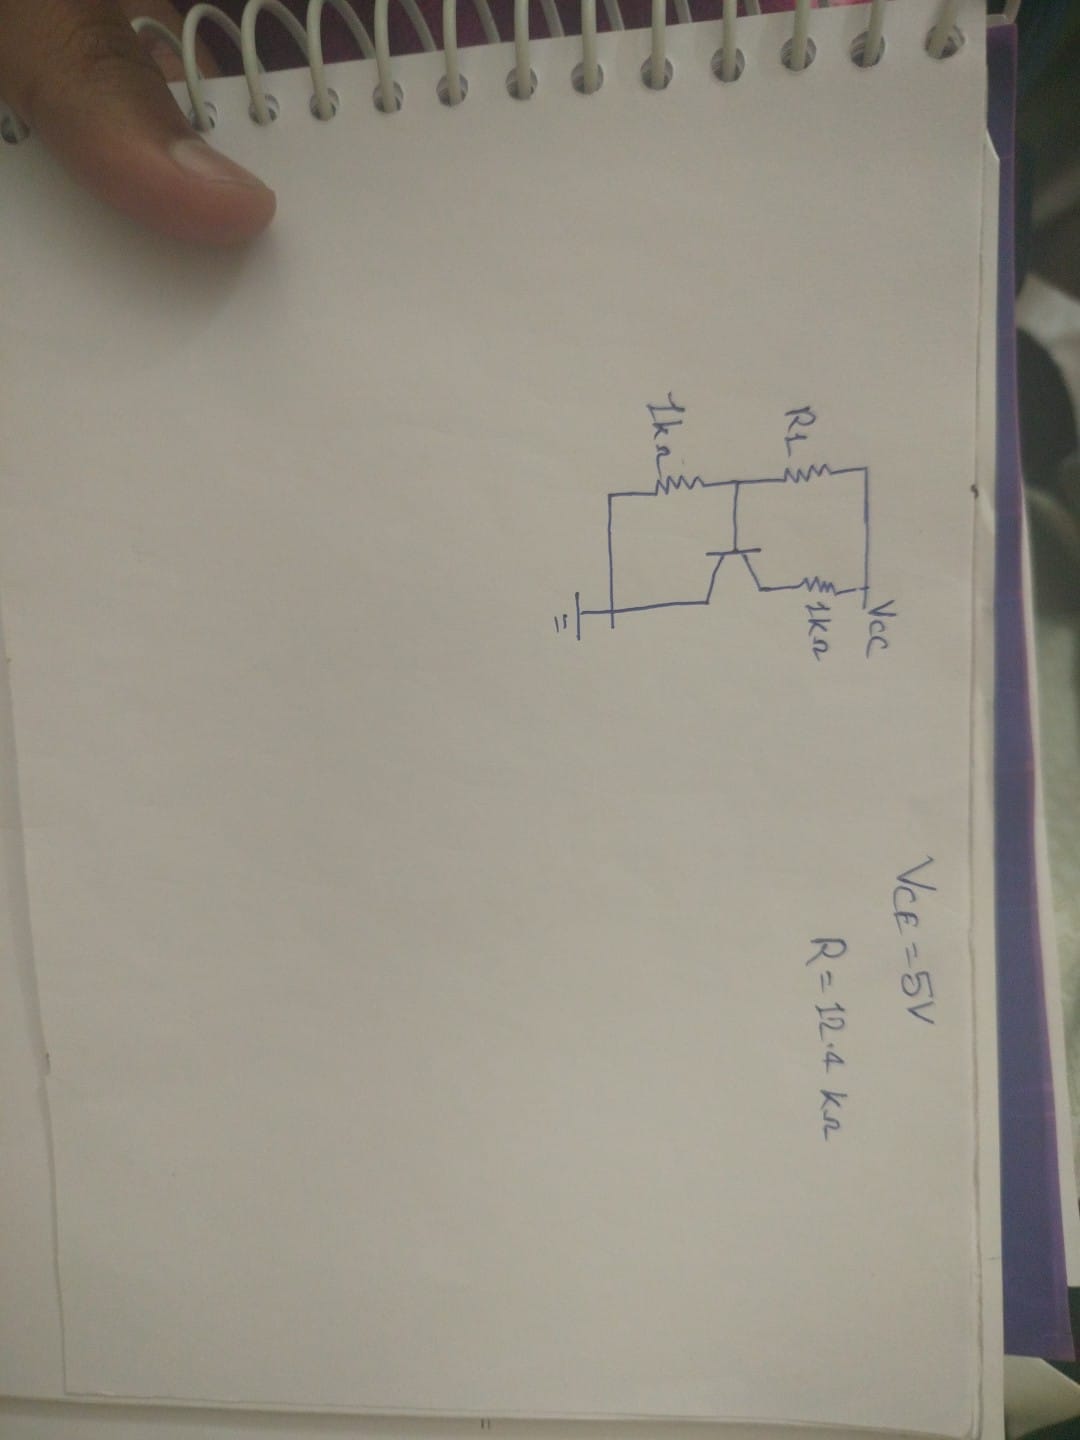 Vcc
R1
1kΩ
1kΩ
VCE = 5V
R = 12.4 kΩ